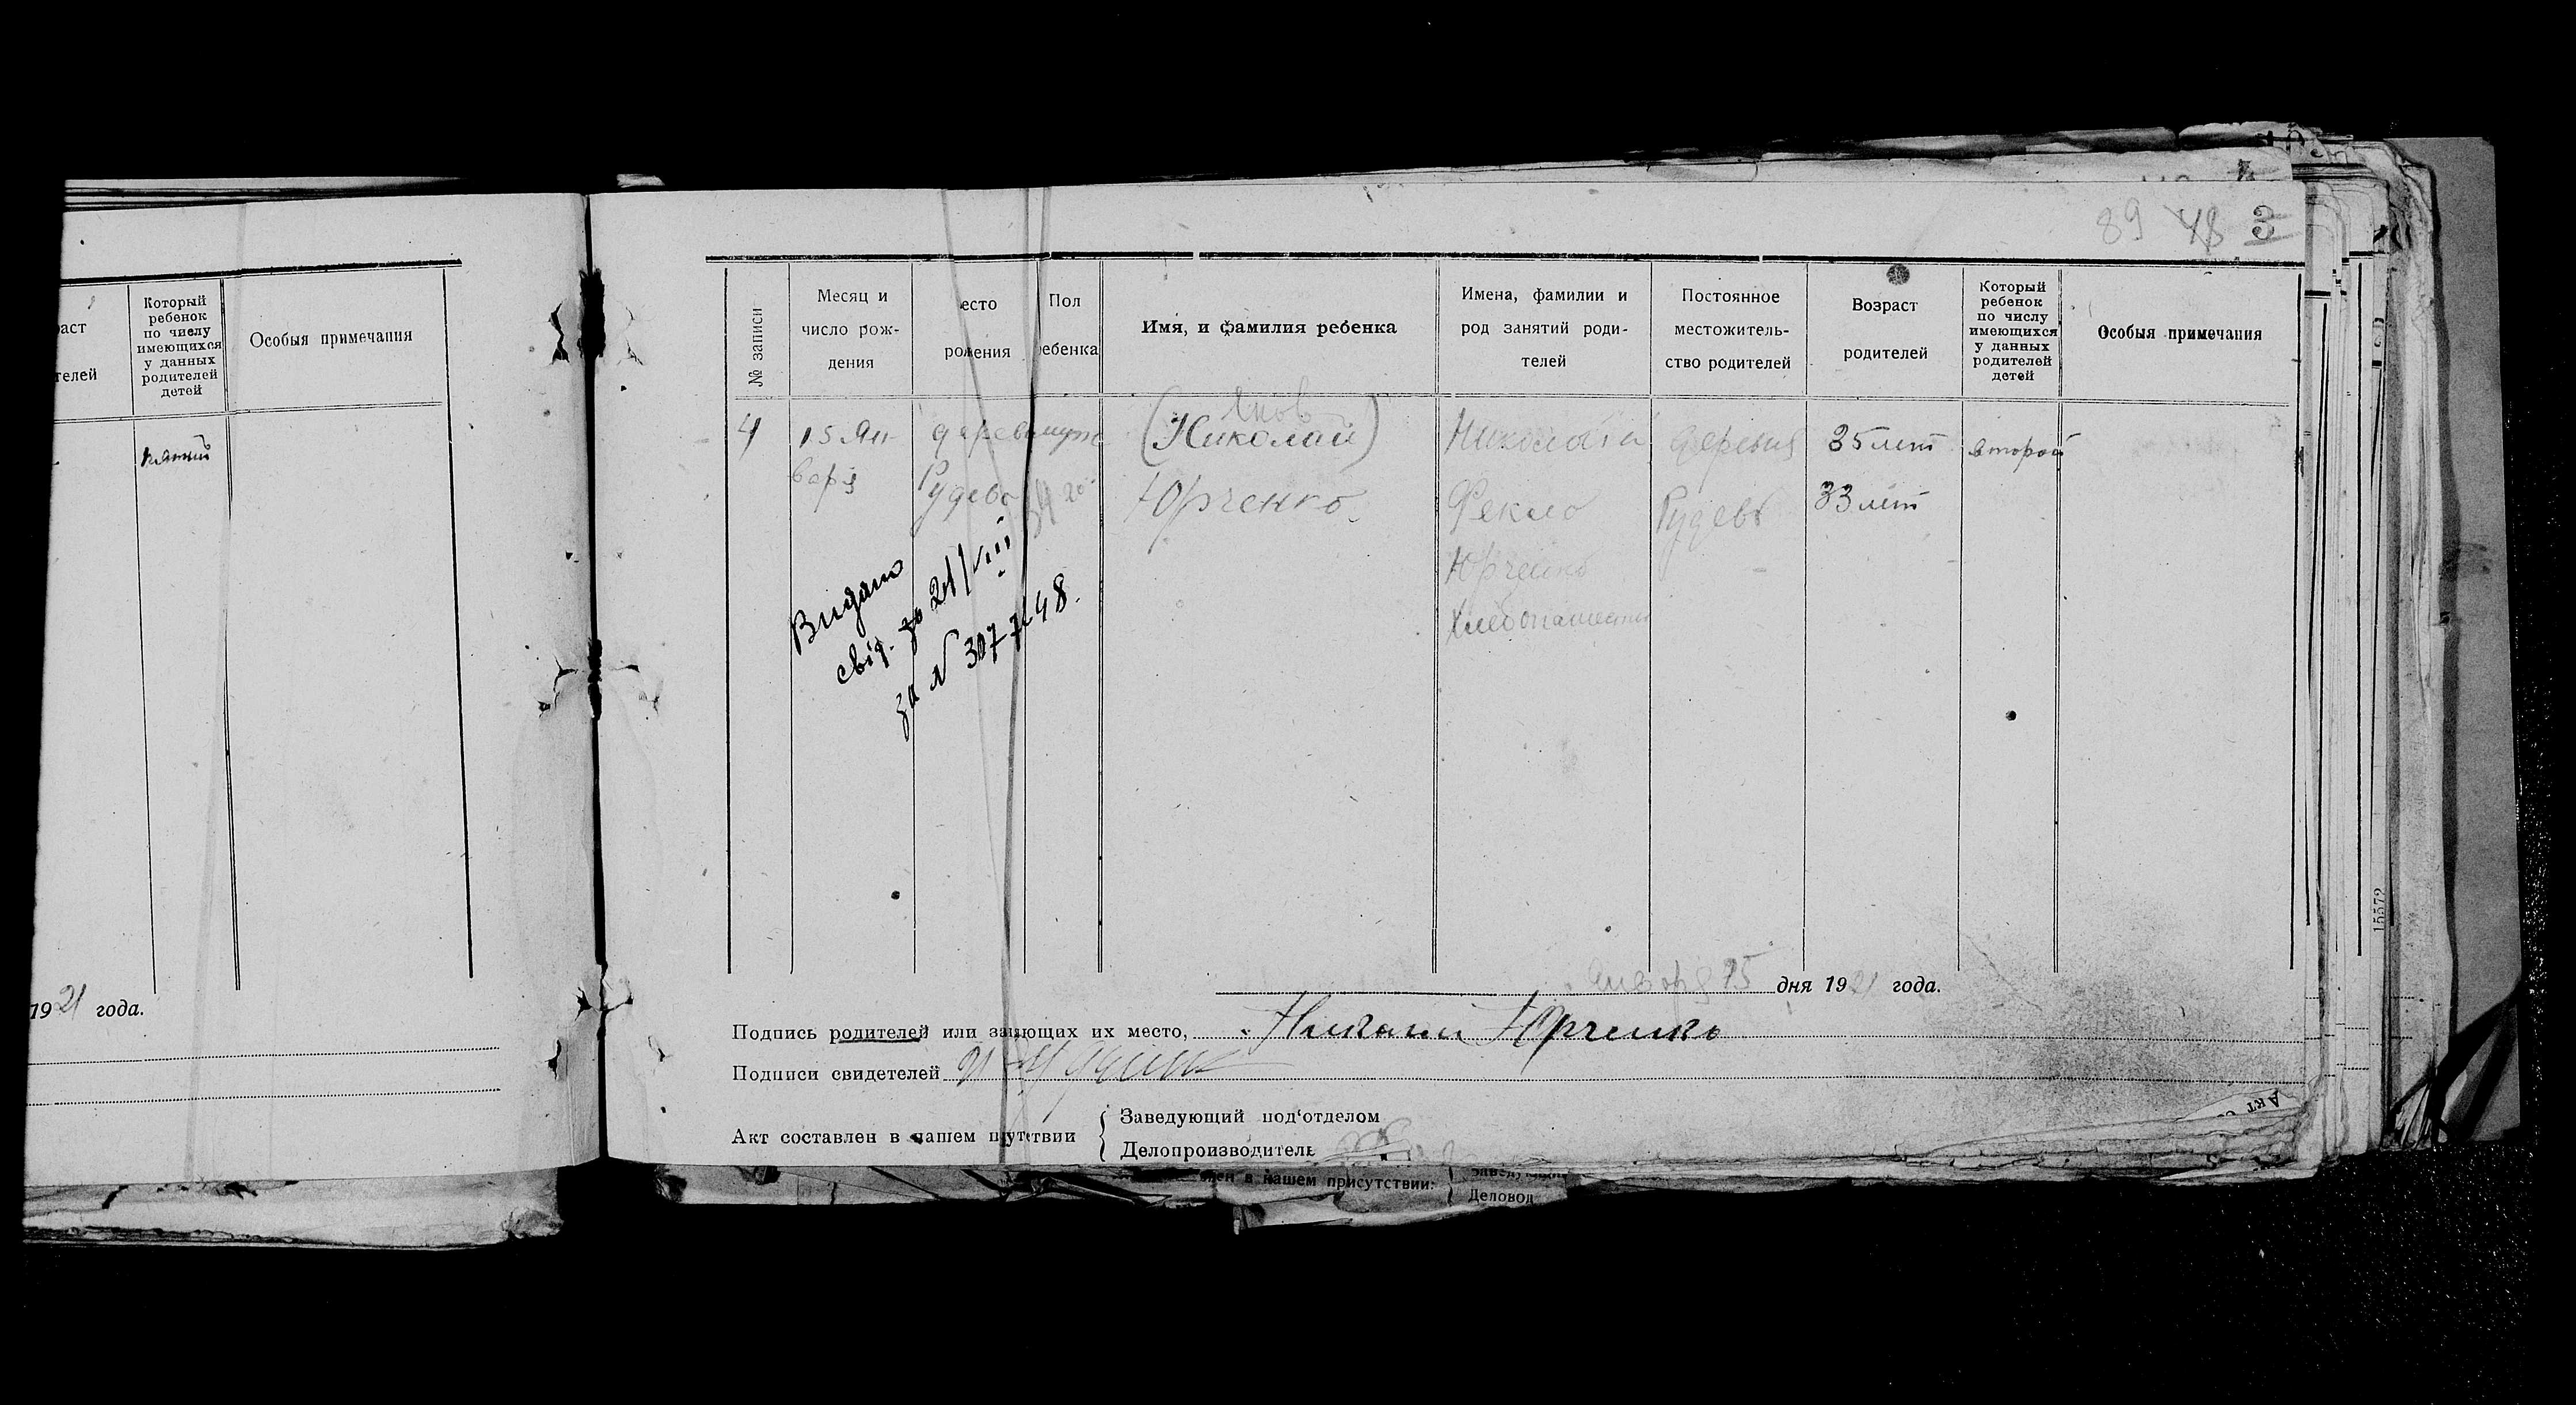 89 48 3
раст
телей
Который
ребенок
по числу
имеющихся
у данных
родителей
детей
Особыя примечания
пятый
1921 года.
№ записи
Месяц и
число рож-
дения
есто
рождения
Пол
ребенка
Имя, и фамилия ребенка
Имена, фамилии и
род занятий роди-
телей
Постоянное
местожитель-
ство родителей
Возраст
родителей
Который
ребенок
по числу
имеющихся
у данных
родителей
детей
Особыя примечания
4
15 Ян-
варя
Яков
(Николай)
Юрченко.
Николай
Фекла
Юрченко
деревня
35 лет
33 лет
второй
Видано
свід. до 21/VIII
за N 307 7/48.
января 15 дня 1921 года.
Подпись родителей или заяющих их место, Николай Юрченко
Подписи свидетелей
Акт составлен в нашем путствии
Заведующий под‘отделом
Делопроизводитель
лен в нашем присутствии:
Заведующ
Деловод
15572